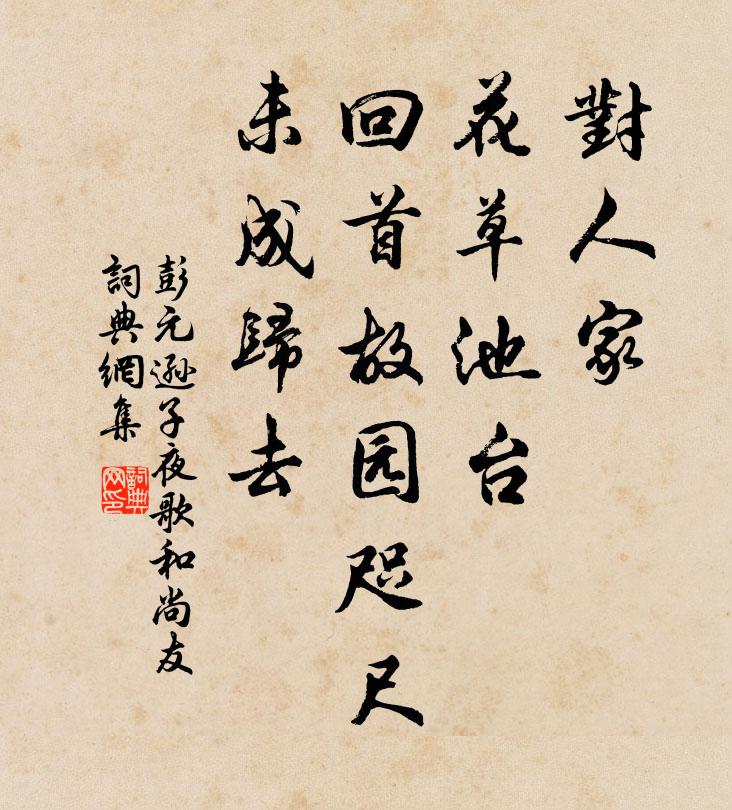 對人家
花草池台
回首故园咫尺
未成歸去
彭元遜子夜歌和尚友
詞典網集
詞典
网印